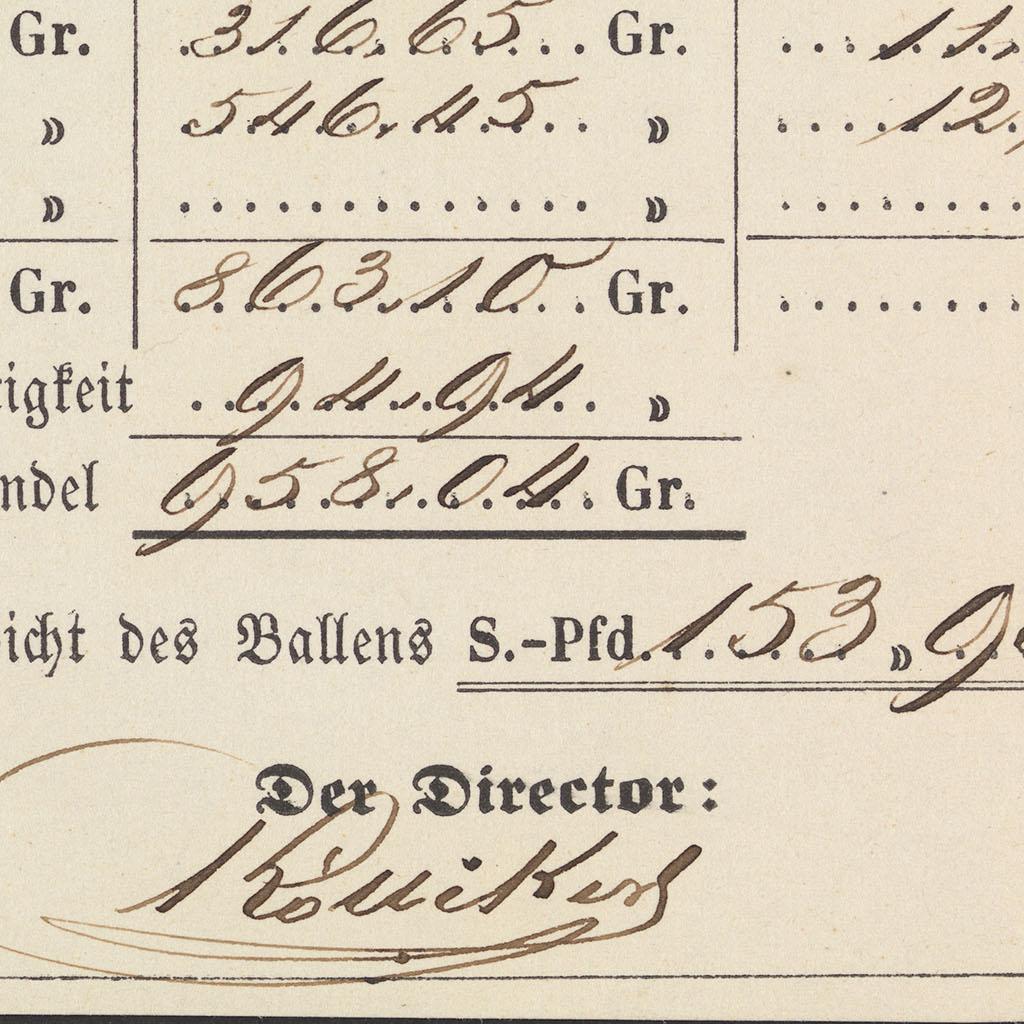 Gr. 316,65 Gr. 11,
" 546,45 " 12,
" "
Gr. 863,10 Gr.
tigkeit 94,94 "
ndel 958,04 Gr.
icht des Ballens S.-Pfd. 153 " 9
Der Director: